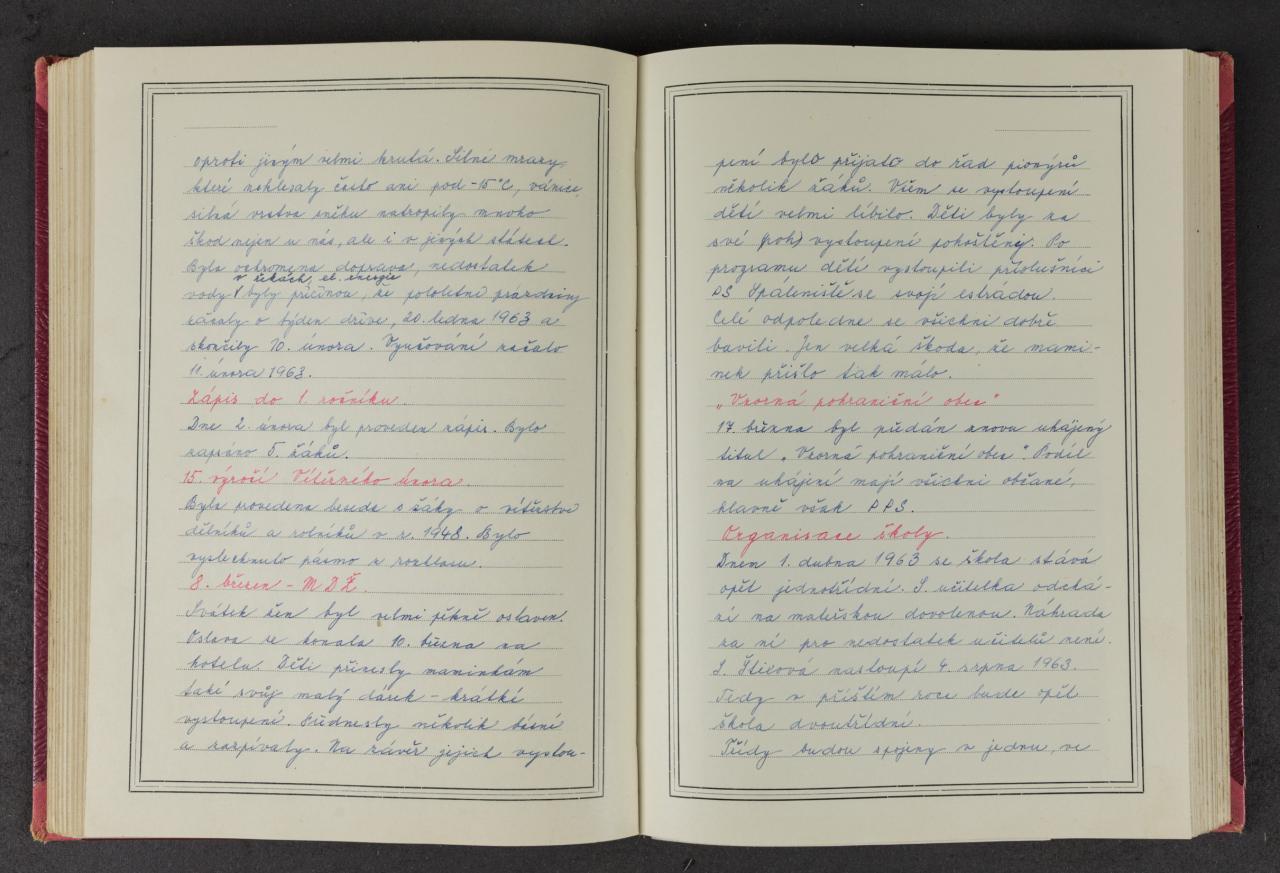 oproti jiným velmi krutá. Silné mrazy,
které neklesaly často ani pod -15°C, vánice,
silná vrstva sněhu natropily mnoho
škod nejen u nás, ale i v jiných státech.
Byla ochromena doprava, nedostatek
v řekách, el. energie
vody byly příčinou, že pololetní prázdniny
začaly o týden dříve, 20. ledna 1963 a
skončily 10. února. Vyučování začalo
11. února 1963.
Zápis do 1. ročníku.
Dne 2. února byl proveden zápis. Bylo
zapsáno 5. žáků.
15. výročí Vítězného února.
Byla provedena beseda s žáky o vítězství
dělníků a rolníků v r. 1948. Bylo
vyslechnuto pásmo z rozhlasu.
8. březen - MDŽ.
Svátek žen byl velmi pěkně oslaven.
Oslava se konala 10. března na
hotelu. Děti přinesly maminkám
také svůj malý dárek - krátké
vystoupení. Přednesly několik básní
a zazpívaly. Na závěr jejich vystou-
pení bylo přijato do řad pionýrů
několik žáků. Všem se vystoupení
dětí velmi líbilo. Děti byly za
své vystoupení pohoštěny. Po
programu dětí vystoupili příslušníci
PS Spáleniště se svojí estrádou.
Celé odpoledne se všichni dobře
bavili. Jen velká škoda, že mami-
nek přišlo tak málo.
"Vzorná pohraniční obec"
17. března byl předán znovu uhájený
titul "Vzorná pohraniční obec". Podíl
na uhájení mají všichni občané,
hlavně však PPS.
Organisace školy.
Dnem 1. dubna 1963 se škola stává
opět jednotřídní. S. učitelka odchá-
zí na mateřskou dovolenou. Náhrada
za ní pro nedostatek učitelů není.
S. nastoupí 4. srpna 1963.
Tedy v příštím roce bude opět
škola dvoutřídní.
Třídy budou spojeny v jednu, ve